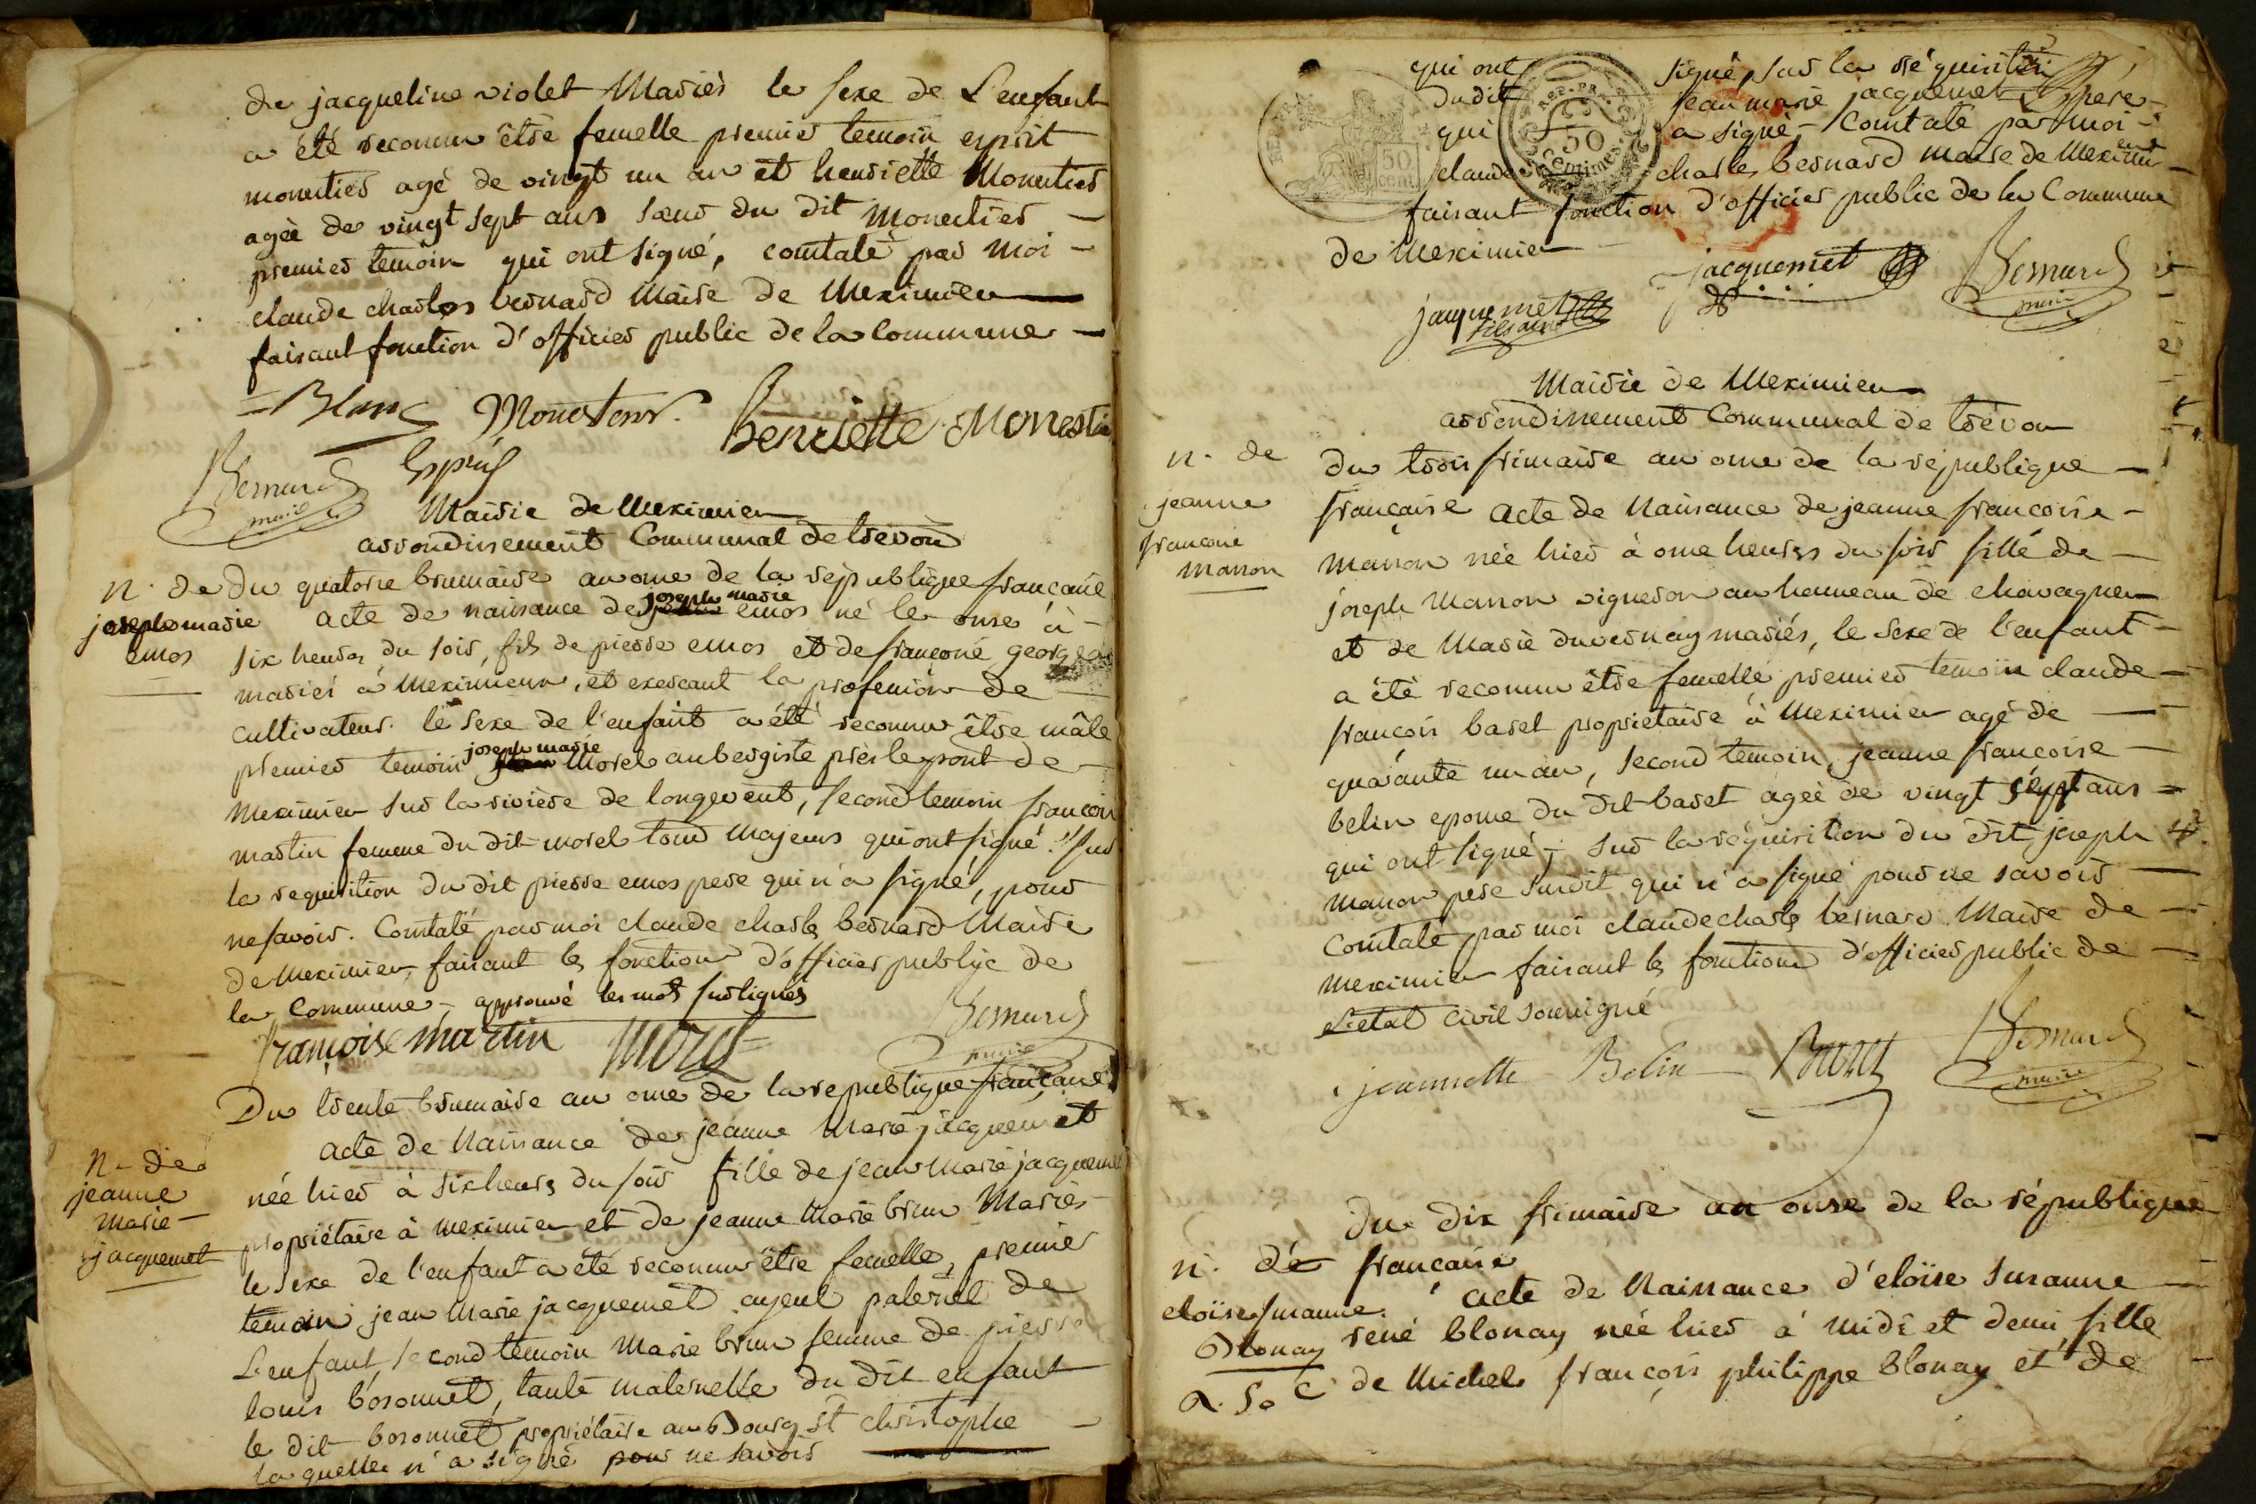 de jacqueline violet Mariés le sexe de L'enfant
a été reconnu être femelle premier temoin esprit
monestier agé de vingt un an et henriette Monestier
agée de vingt sept ans soeur du dit Monestier
premier temoin qui ont signé, constaté par moi
claude charles bernard Maire de Meximieu
faisant fonction d'officier public de la Commune
Blanc Monestier henriette Monestie
Bernard Esprit
maire
Mairie de Meximieu
arrondissement Communal de trevoux
N. de
joseph marie
emos
du quatorze brumaire an onze de la republique française
acte de naissance de joseph marie emos né le onze à
six heures du soir, fils de pierre emos et de françoise george
mariés à Meximieux, et exerçant la profession de
cultivateur. le sexe de l'enfant a été reconnu être mâle
premier temoin joseph marie Morel aubergiste près le pont de
Meximieu sur la riviere de longevent, second temoin françoise
martin femme du dit morel tous majeurs qui ont signé. sur
la requisition du dit pierre emos pere qui n'a signé, pour
ne savoir. Constaté par moi claude charles bernard Maire
de Meximieu, faisant les fonctions d'officier public de
la Commune - approuvé les mots surlignés
françoise martin Morel Bernard
maire
N. de
jeanne
marie
jacquemet
Du trente brumaire an onze de la republique française
acte de Naissance de jeanne Marie jacquemet
née hier à six heures du soir fille de jean Marie jacquemet
propriétaire à meximieu et de jeanne Marie brun Mariés
le sexe de l'enfant a été reconnu être femelle, premier
temoin jean Marie jacquemet ayeul paternel de
L'enfant, second temoin Marie brun femme de pierre
louis bosonnet, tante maternelle du dit enfant
le dit bosonnet propriétaire au Bourg St christophe
la quelle n'a signé pour ne savoir
qui ont signé, sur la réquisition
du dit jean marie jacquemet pere
qui a signé - Constaté par moi
claude charles bernard maire de Meximieu
REP. FRA.
50
centimes
50
cent
faisant fonction d'officier public de la Commune
de Meximieu
jacquemet Bernard
maire
jacquemet
fils ainé
Mairie de Meximieu
arrondissement Communal de trévoux
N. de
jeanne
françoise
manon
du trois frimaire an onze de la république
française acte de Naissance de jeanne françoise
manon née hier à onze heures du soir fille de
joseph Manon vigneron au hameau de chavagneu
et de Marie duvernay mariés, le sexe de l'enfant
a été reconnu être femelle premier temoin claude
françois baret propriétaire à Meximieu agé de
quarante un an, second temoin, jeanne françoise
belin epouse du dit baret agée de vingt sept ans
qui ont signé; sur la réquisition du dit joseph
manon pere susdit qui n'a signé pour ne savoir
Constaté par moi claude charles bernard Maire de
meximieu faisant les fonctions d'officier public de
l'etat civil soussigné
jeannette Belin Baret Bernard
maire
du dix frimaire an onze de la république
N. de
eloïse susanne
Blonay
française
acte de Naissance d'eloïse susanne
rené blonay née hier à midi et demi, fille
de Michel françois philippe blonay et de